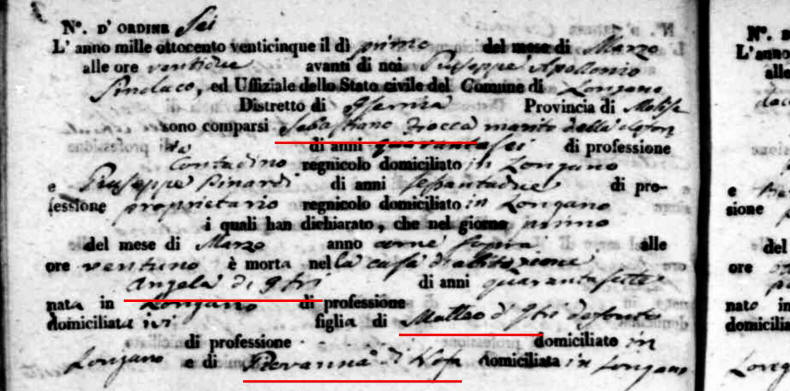 N°. D' ORDINE Sei
L' anno mille ottocento venticinque il dì primo del mese di Marzo
alle ore ventidue avanti di noi Giuseppe Apollonio
Sindaco, ed Uffiziale dello Stato civile del Comune di Longano
Distretto di Isernia Provincia di Molise
sono comparsi Sebastiano Ziocca marito della defon
ta di anni quarantasei di professione
Contadino regnicolo domiciliato in Longano
e Giuseppe Pinardi di anni settantadue di pro-
fessione proprietario regnicolo domiciliato in Longano
i quali han dichiarato, che nel giorno primo
del mese di Marzo anno come sopra alle
ore ventuno è morta nella casa d'abitazione
Angela di Itri di anni quarantasette
nata in Longano di professione
domiciliata ivi figlia di Matteo d'Itri defonto
di professione domiciliato in
Longano e di Pievanna di domiciliata in Longano